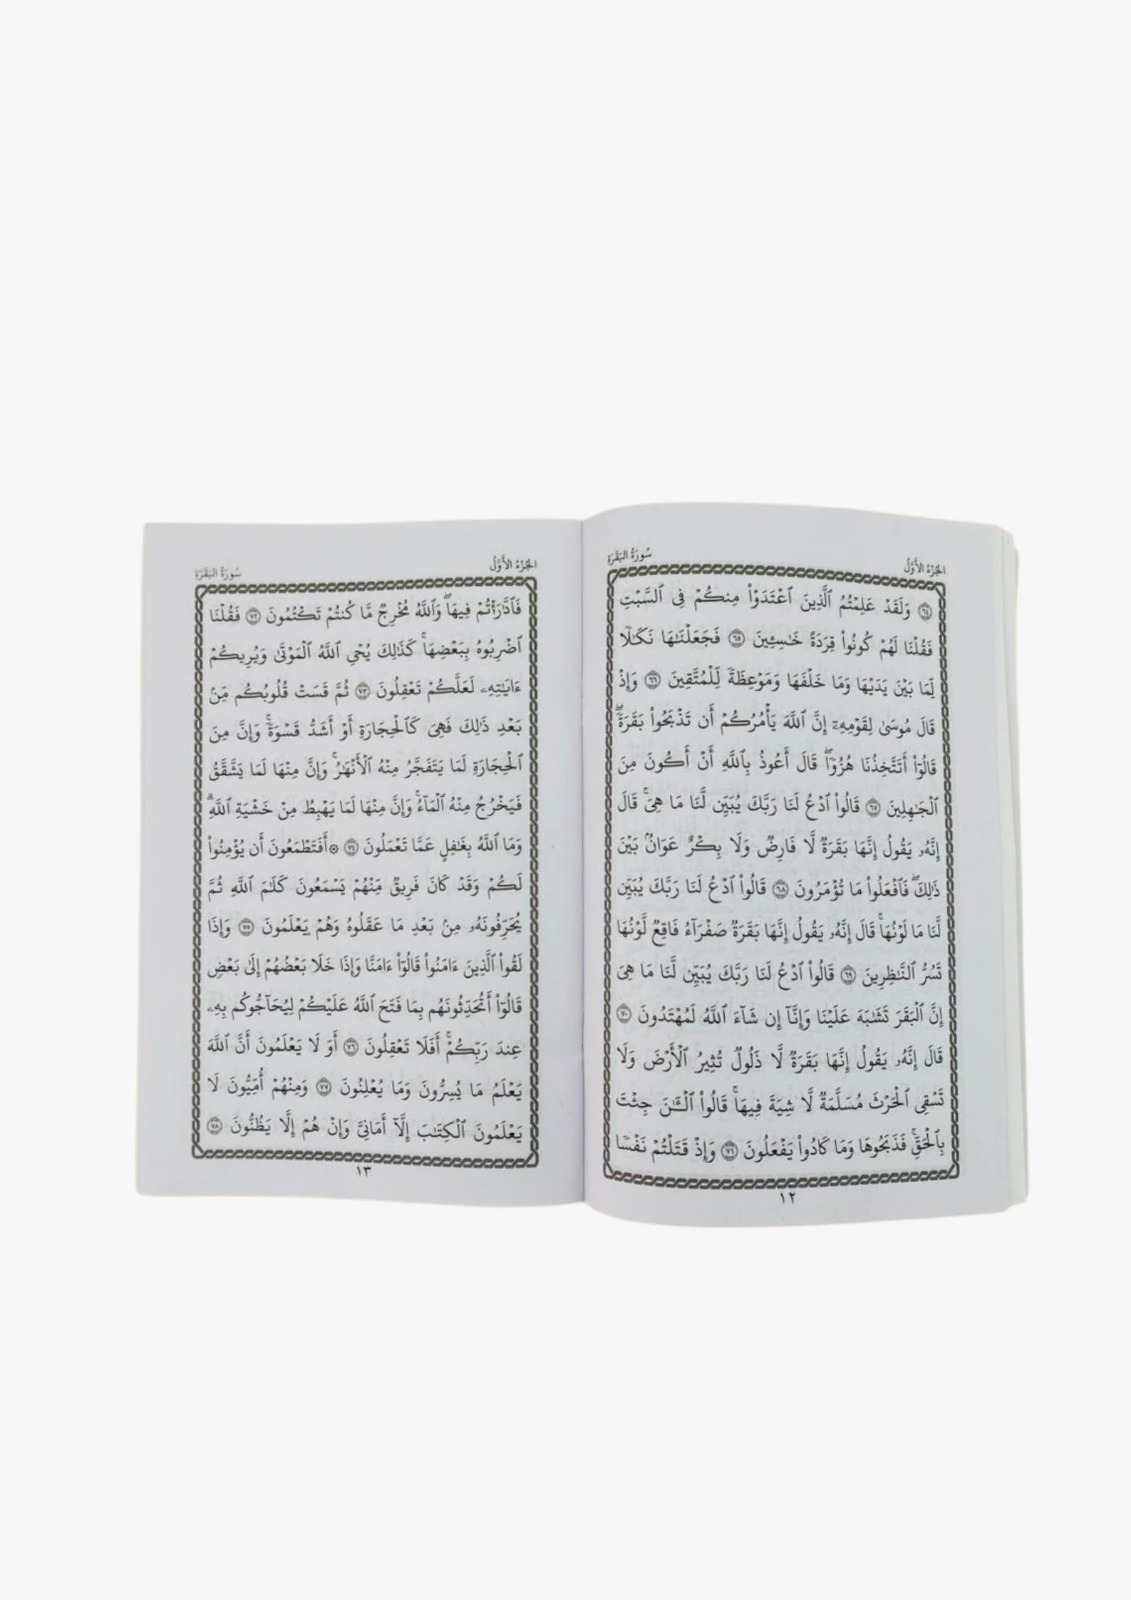 الجزء الأول
سورة البقرة
٦٤ وَلَقَدْ عَلِمْتُمُ ٱلَّذِينَ ٱعْتَدَوْا۟ مِنكُمْ فِى ٱلسَّبْتِ
فَقُلْنَا لَهُمْ كُونُوا۟ قِرَدَةً خَـٰسِـِٔينَ ٦٥ فَجَعَلْنَـٰهَا نَكَـٰلًا
لِّمَا بَيْنَ يَدَيْهَا وَمَا خَلْفَهَا وَمَوْعِظَةً لِّلْمُتَّقِينَ ٦٦ وَإِذْ
قَالَ مُوسَىٰ لِقَوْمِهِۦٓ إِنَّ ٱللَّهَ يَأْمُرُكُمْ أَن تَذْبَحُوا۟ بَقَرَةً ۖ
قَالُوٓا۟ أَتَتَّخِذُنَا هُزُوًا ۖ قَالَ أَعُوذُ بِٱللَّهِ أَنْ أَكُونَ مِنَ
ٱلْجَـٰهِلِينَ ٦٧ قَالُوا۟ ٱدْعُ لَنَا رَبَّكَ يُبَيِّن لَّنَا مَا هِىَ ۚ قَالَ
إِنَّهُۥ يَقُولُ إِنَّهَا بَقَرَةٌ لَّا فَارِضٌ وَلَا بِكْرٌ عَوَانٌۢ بَيْنَ
ذَٰلِكَ ۖ فَٱفْعَلُوا۟ مَا تُؤْمَرُونَ ٦٨ قَالُوا۟ ٱدْعُ لَنَا رَبَّكَ يُبَيِّن
لَّنَا مَا لَوْنُهَا ۚ قَالَ إِنَّهُۥ يَقُولُ إِنَّهَا بَقَرَةٌ صَفْرَآءُ فَاقِعٌ لَّوْنُهَا
تَسُرُّ ٱلنَّـٰظِرِينَ ٦٩ قَالُوا۟ ٱدْعُ لَنَا رَبَّكَ يُبَيِّن لَّنَا مَا هِىَ
إِنَّ ٱلْبَقَرَ تَشَـٰبَهَ عَلَيْنَا وَإِنَّآ إِن شَآءَ ٱللَّهُ لَمُهْتَدُونَ ٧٠
قَالَ إِنَّهُۥ يَقُولُ إِنَّهَا بَقَرَةٌ لَّا ذَلُولٌ تُثِيرُ ٱلْأَرْضَ وَلَا
تَسْقِى ٱلْحَرْثَ مُسَلَّمَةٌ لَّا شِيَةَ فِيهَا ۚ قَالُوا۟ ٱلْـَٔـٰنَ جِئْتَ
بِٱلْحَقِّ ۚ فَذَبَحُوهَا وَمَا كَادُوا۟ يَفْعَلُونَ ٧١ وَإِذْ قَتَلْتُمْ نَفْسًا
١٢
الجزء الأول
سورة البقرة
فَٱدَّٰرَْٰٔتُمْ فِيهَا ۖ وَٱللَّهُ مُخْرِجٌ مَّا كُنتُمْ تَكْتُمُونَ ٧٢ فَقُلْنَا
ٱضْرِبُوهُ بِبَعْضِهَا ۚ كَذَٰلِكَ يُحْىِ ٱللَّهُ ٱلْمَوْتَىٰ وَيُرِيكُمْ
ءَايَـٰتِهِۦ لَعَلَّكُمْ تَعْقِلُونَ ٧٣ ثُمَّ قَسَتْ قُلُوبُكُم مِّنۢ
بَعْدِ ذَٰلِكَ فَهِىَ كَٱلْحِجَارَةِ أَوْ أَشَدُّ قَسْوَةً ۚ وَإِنَّ مِنَ
ٱلْحِجَارَةِ لَمَا يَتَفَجَّرُ مِنْهُ ٱلْأَنْهَـٰرُ ۚ وَإِنَّ مِنْهَا لَمَا يَشَّقَّقُ
فَيَخْرُجُ مِنْهُ ٱلْمَآءُ ۚ وَإِنَّ مِنْهَا لَمَا يَهْبِطُ مِنْ خَشْيَةِ ٱللَّهِ ۗ
وَمَا ٱللَّهُ بِغَـٰفِلٍ عَمَّا تَعْمَلُونَ ٧٤ ۞ أَفَتَطْمَعُونَ أَن يُؤْمِنُوا۟
لَكُمْ وَقَدْ كَانَ فَرِيقٌ مِّنْهُمْ يَسْمَعُونَ كَلَـٰمَ ٱللَّهِ ثُمَّ
يُحَرِّفُونَهُۥ مِنۢ بَعْدِ مَا عَقَلُوهُ وَهُمْ يَعْلَمُونَ ٧٥ وَإِذَا
لَقُوا۟ ٱلَّذِينَ ءَامَنُوا۟ قَالُوٓا۟ ءَامَنَّا وَإِذَا خَلَا بَعْضُهُمْ إِلَىٰ بَعْضٍ
قَالُوٓا۟ أَتُحَدِّثُونَهُم بِمَا فَتَحَ ٱللَّهُ عَلَيْكُمْ لِيُحَآجُّوكُم بِهِۦ
عِندَ رَبِّكُمْ ۚ أَفَلَا تَعْقِلُونَ ٧٦ أَوَلَا يَعْلَمُونَ أَنَّ ٱللَّهَ
يَعْلَمُ مَا يُسِرُّونَ وَمَا يُعْلِنُونَ ٧٧ وَمِنْهُمْ أُمِّيُّونَ لَا
يَعْلَمُونَ ٱلْكِتَـٰبَ إِلَّآ أَمَانِىَّ وَإِنْ هُمْ إِلَّا يَظُنُّونَ ٧٨
١٣